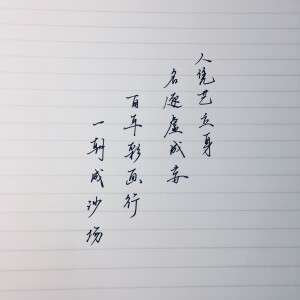 人凭艺立身
名逐虚成妄
百年彩画行
一朝成沙场